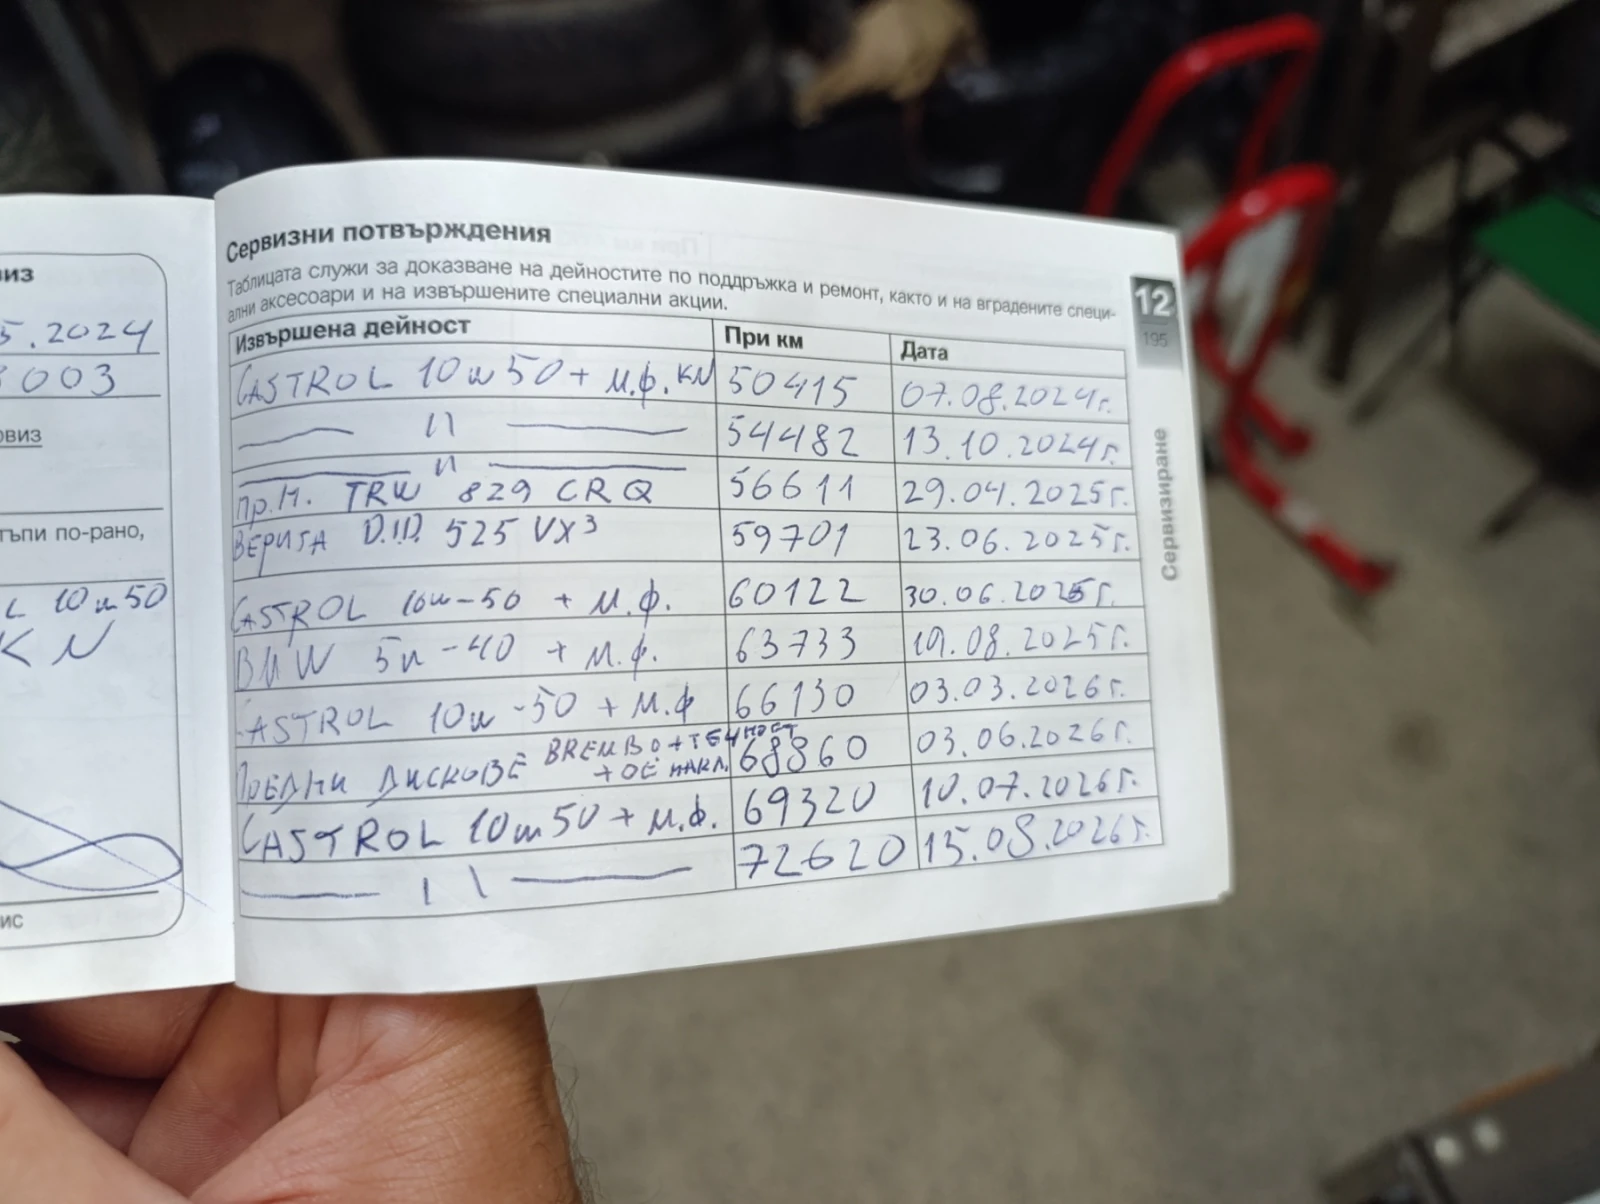 виз
5.2024
003
рвиз
тъпи по-рано,
L 10w50
KN
ис
Сервизни потвърждения
Таблицата служи за доказване на дейностите по поддръжка и ремонт, както и на вградените специ-
ални аксесоари и на извършените специални акции.
Извършена дейност При км Дата
CASTROL 10w50 + М.Ф. KN 50415 07.08.2024г.
— 11 — 54482 13.10.2024г.
— 11 —
Пр.Н. TRW 829 CRQ 56611 29.04.2025г.
ВЕРИГА D.I.D. 525 VX3 59701 23.06.2025г.
CASTROL 10w-50 + М.Ф. 60122 30.06.2025г.
BMW 5w-40 + М.Ф. 63733 19.08.2025г.
CASTROL 10w-50 + М.Ф 66130 03.03.2026г.
ПРЕДНИ ДИСКОВЕ BREMBO + ТЕЧНОСТ
+ OE НАКЛ. 68860 03.06.2026г.
CASTROL 10w50 + М.Ф. 69320 10.07.2026г.
— 11 — 72620 15.08.2026г.
12
195
Сервизиране